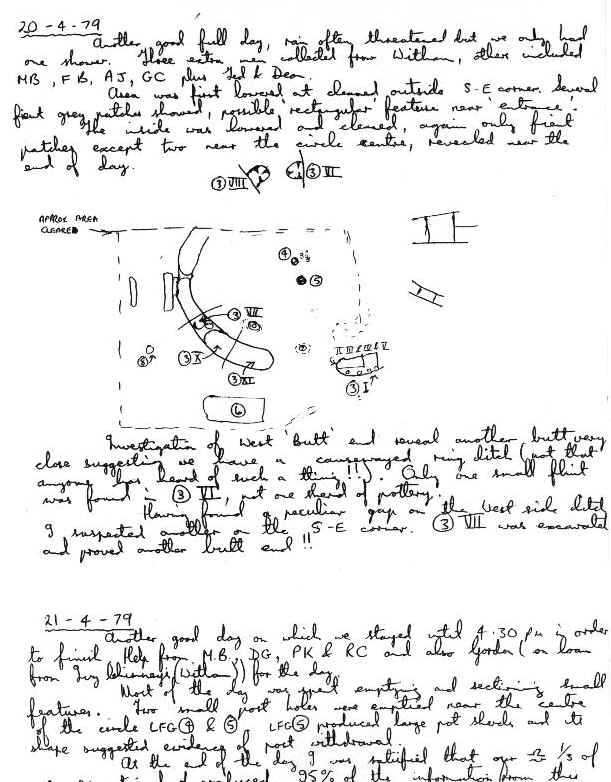 20-4-79
Another good full day, rain often threatened but we only had
one shower. Three extra men collected from Witham, others included
MB, FB, AJ, GC plus Ted & Dean.
Area was first lowered at cleaned outside S-E corner. Several
fient grey patches showed, possible 'rectangular' feature near 'entrance'.
The inside was lowered and cleaned, again only fient
patches except two near the circle centre, revealed near the
end of day.
③ VIII ③ VI
APPROX AREA
CLEARED
④
⑤
③ VII
⑧
③ X
③ XI
⑥
II III IV V
③ I
Investigation of west 'Butt' end reveal another butt very
close suggesting we have a causewayed ring ditch (not that
anyone has heard of such a thing!!). Only one small flint
was found in ③ VI, not one sherd of pottery.
Having found a peculiar gap on the west side ditch
I suspected another on the S-E corner. ③ VII was excavated
and proved another butt end!!
21-4-79
Another good day on which we stayed until 4.30 pm in order
to finish Help from M.B, DG, PK & RC and also Gordon (on loan
from Guy (Witham)) for the day.
Most of the day was spent emptying and sectioning small
features. Two small post holes were emptied near the centre
of the circle LFG④ & ⑤ LFG⑤ produced large pot sherds and its
shape suggested evidence of post withdrawal.
At the end of the day I was satisfied that our 1/3 of
produced 95% of the information from this